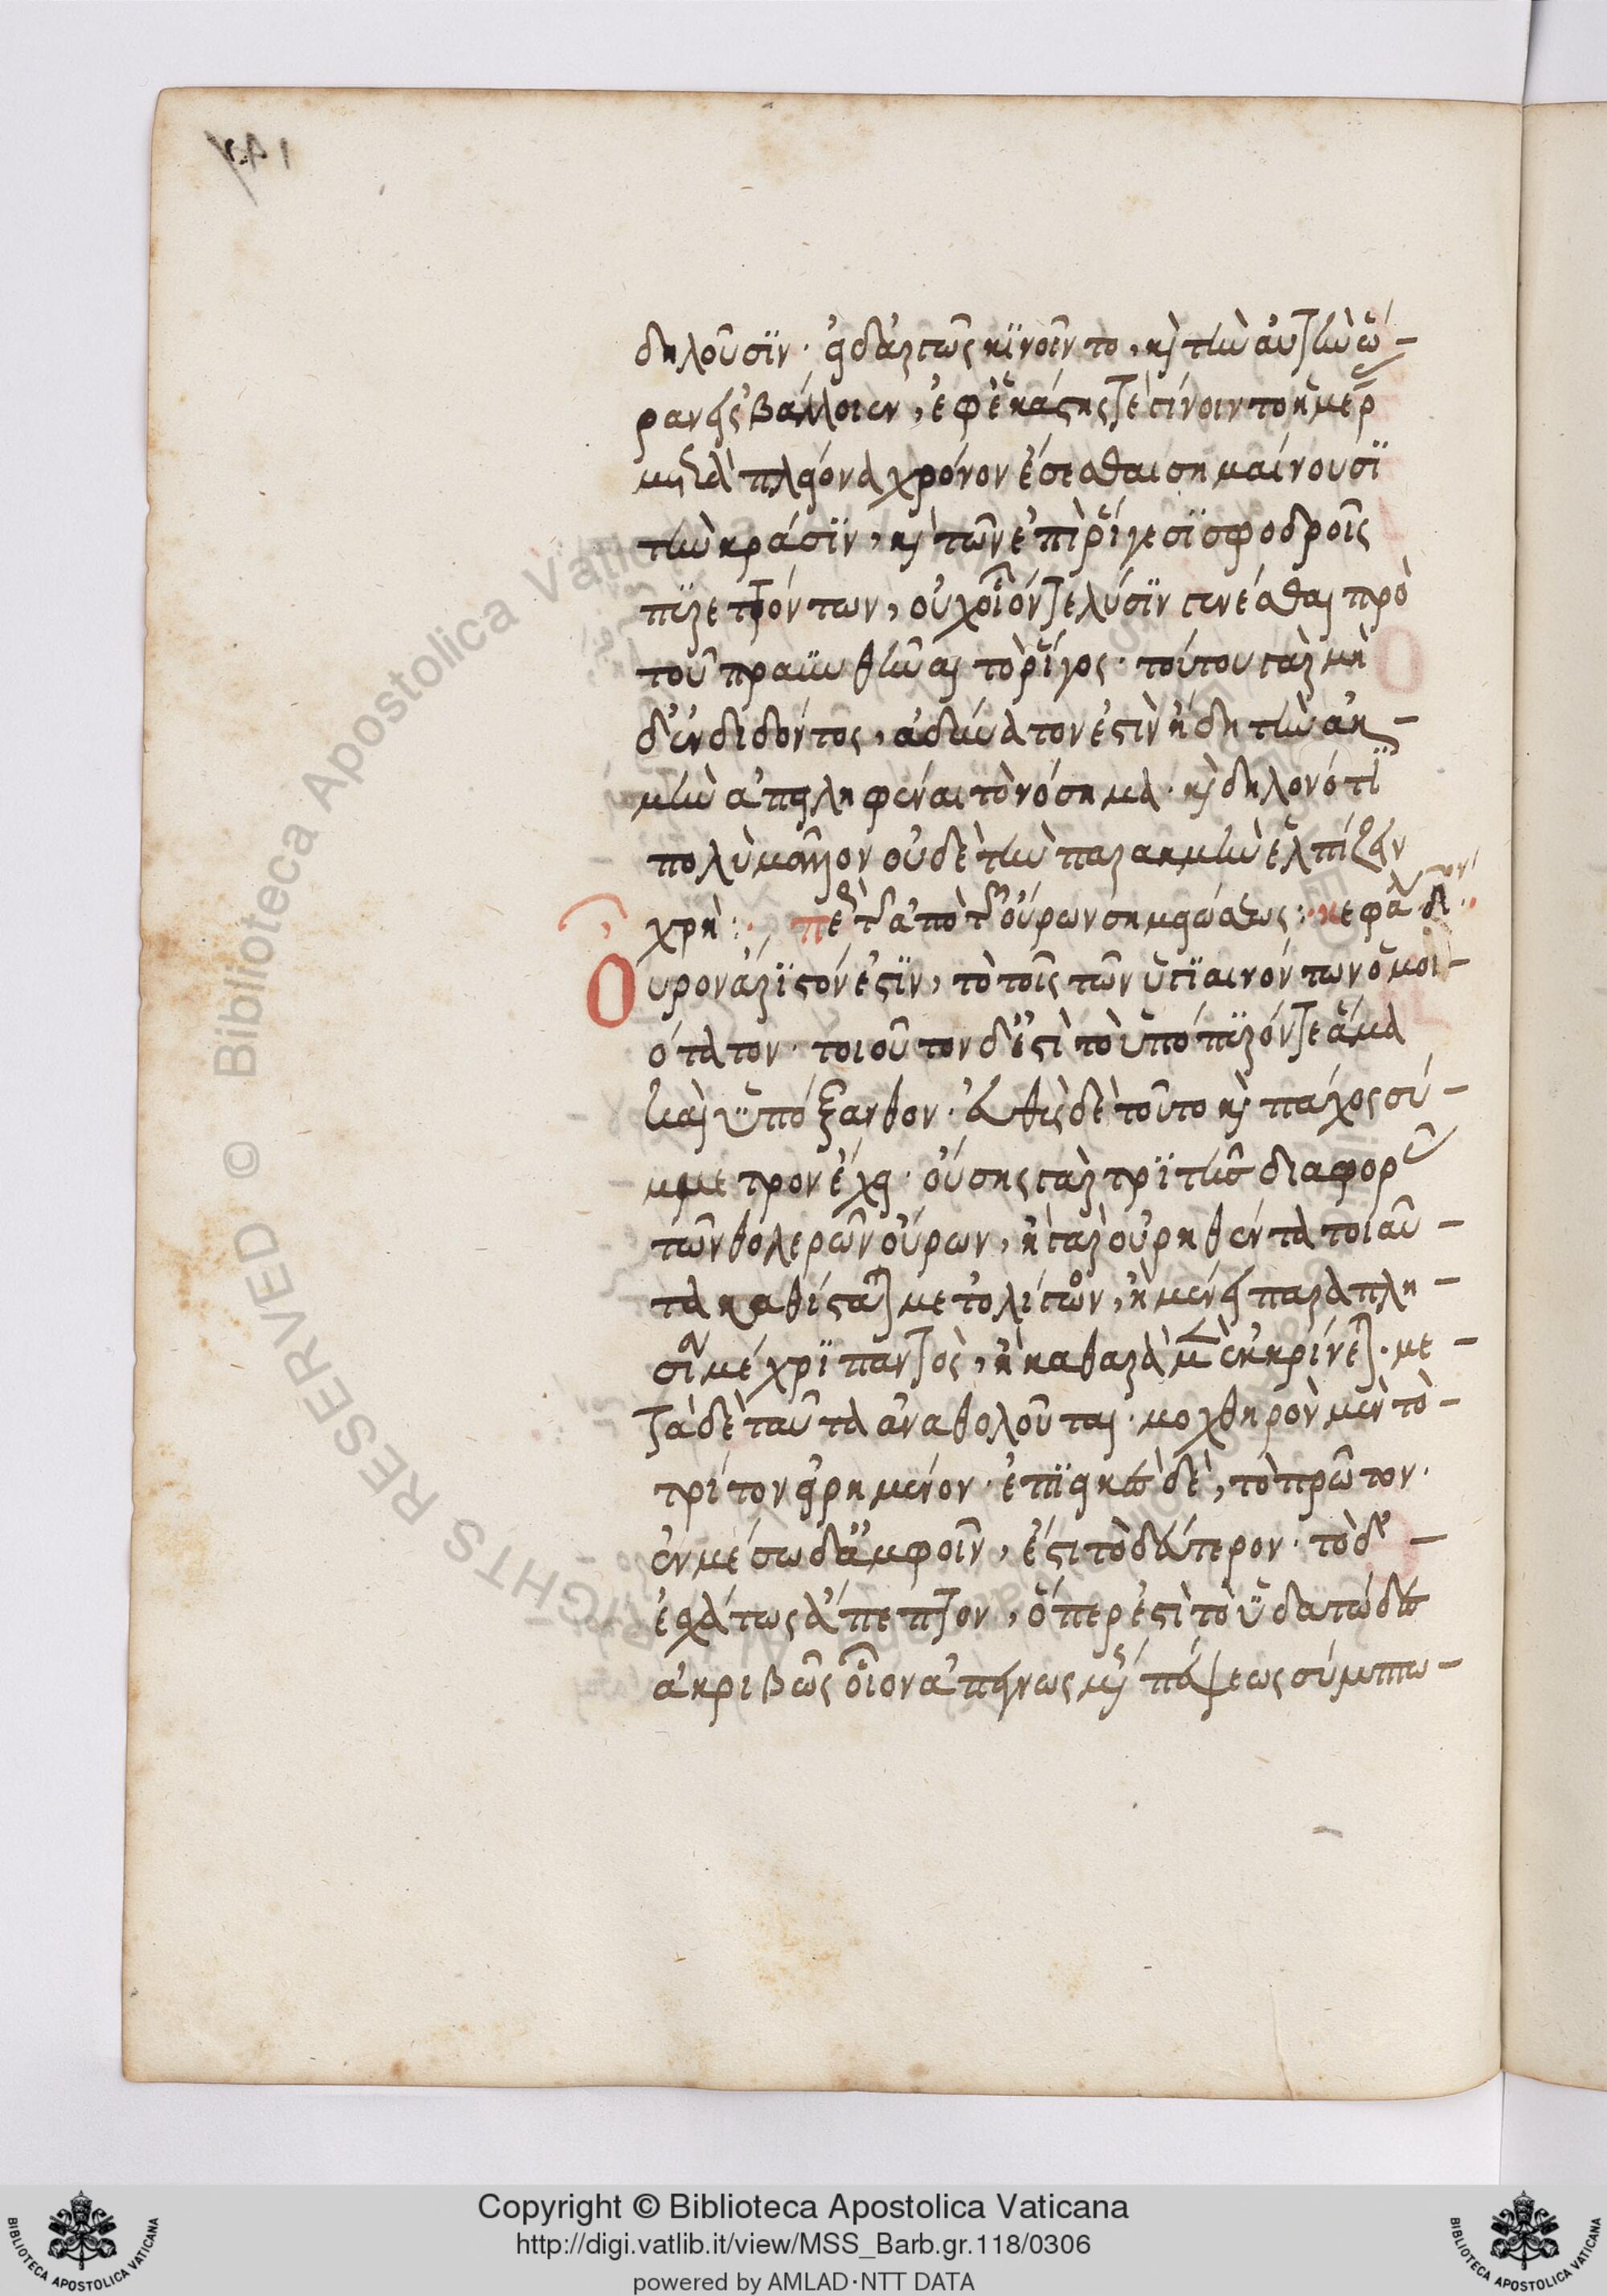 δηλοῦσιν· εἰ δ' ἀτάκτως κινοῖντο, καὶ τὴν αὐτὴν ὥ-
ραν εἰσβάλλοιεν, ἐφ' ἑκάστης τε γίνοιντο ἡμέρ
μετὰ πλείονα χρόνον ἔσεσθαι σημαίνουσι
τὴν κράσιν, καὶ τῶν ἐπὶ ῥίγεσι σφοδροῖς
πυρετόντων, οὐχ οἷόν τε λύσιν γενέσθαι πρὸ
τοῦ πραϋνθῆναι τὸ ῥῖγος· τούτου γὰρ μη
δ' ἐνδιδόντος, ἀδύνατον ἐστὶν ἤδη τὴν ἀκ-
μὴν ἀπειληφέναι τὸ νόσημα· καὶ δηλονότι
πολὺ μᾶλλον οὐδὲ τὴν παρακμὴν ἐλπίζειν
χρή: περὶ τῆς ἀπὸ τῶν οὔρων σημειώσεως: κεφάλ δ ον
Οὖρον ἄριστόν ἐστιν, τὸ τοῖς τῶν ὑγιαινόντων ὁμοι-
ότατον· τοιοῦτον δ' ἐστὶ τὸ ὑπόπυρόν τε ἅμα
καὶ ὑπόξανθον· εὐθὺς δὲ τοῦτο καὶ πάχος σύ-
μμετρον ἔχει· οὔσης γὰρ τριττῆς διαφορᾶς
τῶν θολερῶν οὔρων, ἢ γὰρ οὐρηθέντα τοιαῦ-
τα καθίσταται μετ' ὀλίγον, ἢ μένει παραπλη-
σίαν μέχρι παντὸς, ἢ καθαρὰ μὲν ἐκκρίνεται· με-
τὰ δὲ ταῦτα ἀναθολοῦται· μοχθηρὸν μὲν τὸ-
τρίτον εἰρημένον· ἐπιεικὲς δὲ, τὸ πρῶτον·
ἐν μέσω δ' ἀμφοῖν, ἐστὶ τὸ δεύτερον· τὸ δ' -
ἐσχάτως ἄπεπτον, ὅπερ ἐστὶ τὸ ὑδατῶδες
ἀκριβῶς οἷον ἄπεινως μετὰ πέψεως σύμπτω-
Copyright © Biblioteca Apostolica Vaticana
http://digi.vatlib.it/view/MSS_Barb.gr.118/0306
powered by AMLAD·NTT DATA